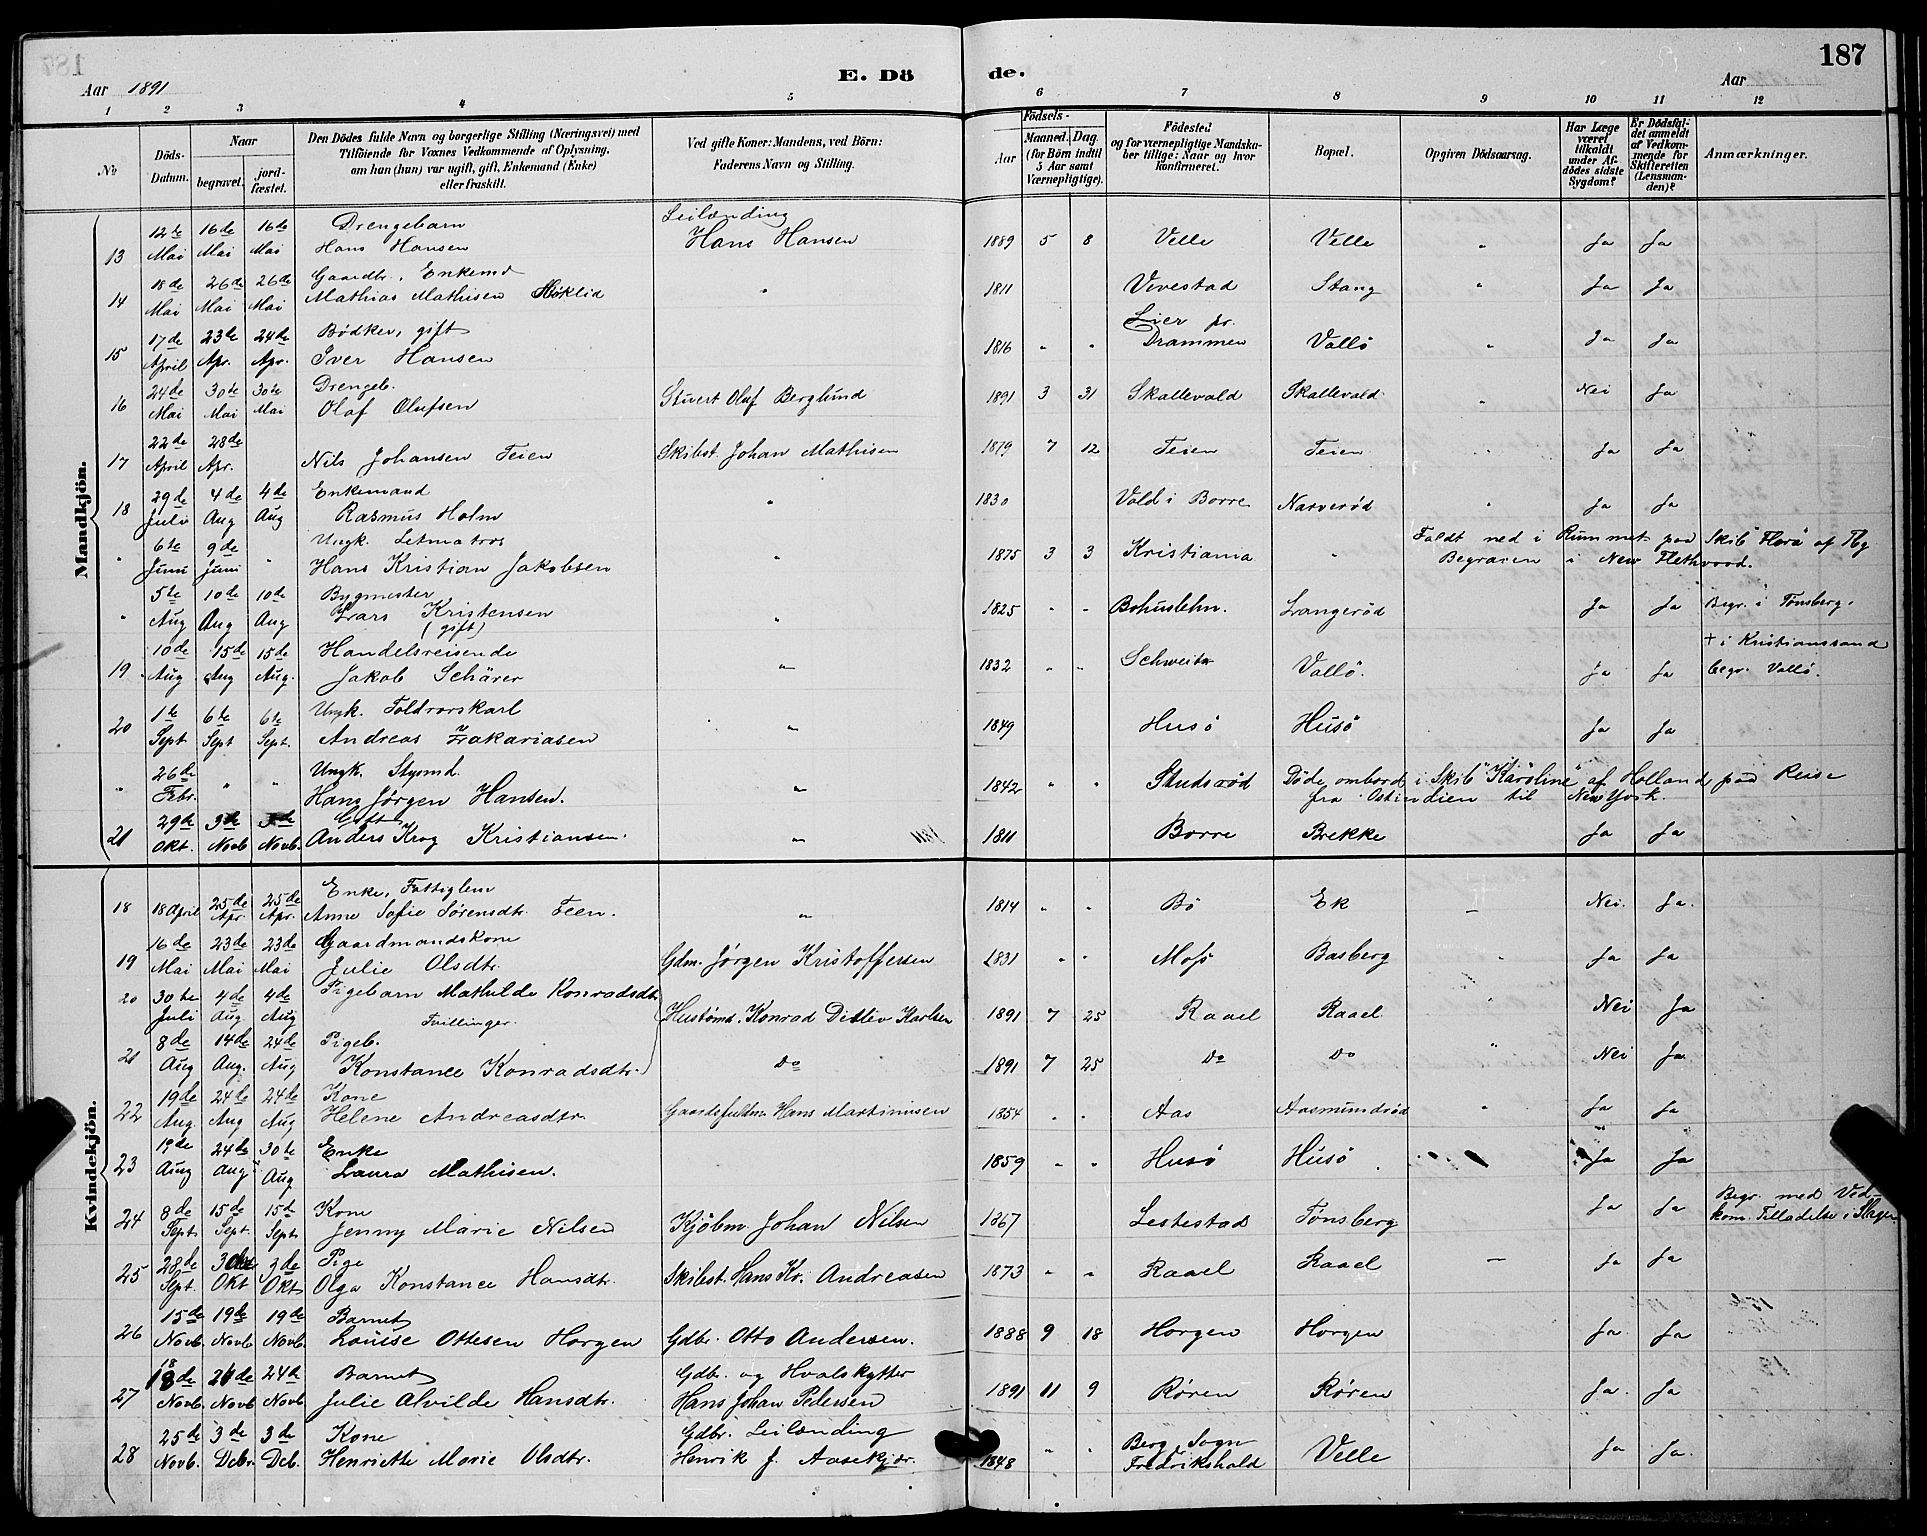 187
Aar 1891
E. Dö de.
Aar
1 2 3 4 5 6 7 8 9 10 11 12
No
Döds-Datum.
Naar
begravet.
jord-fæstet.
Den Dödes fulde Navn og borgerlige Stilling (Næringsvei) med
Tilföiende for Voxnes Vedkommende af Oplysning,
om han (hun) var ugift, gift, Enkemand (Enke)
eller fraskilt.
Ved gifte Koner: Mandens, ved Börn:
Faderens Navn og Stilling.
Födsels-
Aar
Maaned. Dag.
(for Börn indtil
5 Aar samt
Værnepligtige).
Födested
og for værnepligtige Mandska-
ber tillige: Naar og hvor
konfirmeret.
Bopæl.
Opgiven Dödsaarsag.
Har Læge
været
tilkaldt
under Af-
dödes sidste
Sygdom?
Er Dödsfal-
det anmeldt
af Vedkom-
mende for
Skifteretten
(Lensman-
den)?
Anmærkninger.
Mandkjön.
12te 16de 16de Drengebarn Leilænding
13 Mai Mai Mai Hans Hansen Hans Hansen 1889 5 8 Velle Velle " Ja Ja
18de 26de 26de Gaardbr., Enkemd
14 Mai Mai Mai Mathias Mathisen Röklid " 1811 Vivestad Stang " Ja Ja
17de 23de 24de Bödker, gift Lier pr.
15 April Apr. Apr. Iver Hansen 1816 " " Drammen Vallö " Ja Ja
24de 30te 30te Drengeb.
16 Mai Mai Mai Olaf Olufsen Stuert Oluf Berglund 1891 3 31 Skallevald Skallevald " Nei Ja
22de 28de
17 April Apr. Nils Johansen Teien Skibst. Johan Mathisen 1879 7 12 Teien Teien Ja Ja
29de 4de 4de Enkemand
18 Juli Aug Aug Rasmus Holm " 1830 Vold i Borre Narverød " Ja Ja
6te 9de Ungk. Letmatros Faldt ned i Rummet paa Skib "Flora" af Tbg
" Juni Juni " Hans Kristian Jakobsen " 1875 3 3 Kristiania " Begraven i New Flethwood.
5te 10de 10de Bygmester
" Aug Aug Aug Lars Kristensen " 1825 " " Bohuslehn. Langerød Ja Ja Begr. i Tönsberg.
(gift)
10de 15de 15de Handelsreisende † i Kristianssand
19 Aug Aug Aug. Jakob Schärer " 1832 " " Schweitz Vallö. Ja Ja begr. Vallö.
1te 6te 6te Ungk. Toldrorskarl
20 Sept Sept Sept. Andreas Zakariasen " 1849 Husö Husö Ja Ja
26de Ungk. Stymd. Döde ombord i Skib "Karoline" af Holland paa Reise
" Febr. " " Hans Jørgen Hansen. " 1842 " " Studsrød fra Ostindien til New York.
29de 3de 3de Gift
21 Okt. Novb Novb. Anders Krog Kristiansen. " 1811 Borre Brekke Ja Ja
Kvindekjön.
25de 25de Enke, Fattiglem
18 18 April Apr. Apr. Anne Sofie Sörensdtr. Teen. " 1814 " " Bö Ek — Nei. Ja.
16de 23de 23de Gaardmandskone
19 Mai Mai Mai Julie Olsdtr. Gdm. Jørgen Kristoffersen 1831 " " Moss Basberg " Ja Ja
20 30te 4de 4de Pigebarn Mathilde Konradsdtr
Juli Aug Aug Tvillinger. Hustömd. Konrad Ditlev Karlsen 1891 7 25 Raael Raael " Nei Ja
8de 14de 24de Pigeb.
21 Aug Aug. Aug Konstance Konradsdtr. Do 1891 7 25 Do Do " Nei Ja
19de 24de 24de Kone
22 Aug. Aug Aug Helene Andreasdtr. Gaardsfuldm. Hans Martinusen 1854 " " Aas Aasmundrød " Ja Ja
19de 24de 30te Enke
23 Aug Aug Aug Laura Mathisen. 1859 " " Husö Husö Ja Ja
8de 15de 15de Kone Begr. med Ved-
24 Sept. Sept. Sept Jenny Marie Nilsen Kjöbm. Johan Nilsen 1867 Lestestad Tønsberg Ja Ja kom. Tilladelse i Slagen
28de 3de 3de Pige
25 Sept. Okt Okt Olga Konstance Hansdtr. Skibst. Hans Kr. Andreasen 1873 " " Raael Raael — Ja Ja
15de 19de 19de Barnet
26 Novb. Novb. Novb. Louise Ottesen Horgen Gdbr. Otto Andersen. 1888 9 18 Horgen Horgen Ja. Ja
18de 24de Barnet Gdbr. og Hvalskytter
27 Novb. Novb Novb Julie Alvilde Hansdtr. Hans Johan Pedersen 1891 11 9 Røren Røren Ja. Ja
25de 3de 3de Kone Gdbr. Leilænding Berg Sogn
28 Novb. Debr. Deb. Henriette Marie Olsdtr. Henrik J. Aasekjær. 1848 " " Fredrikshald Velle Ja Ja.